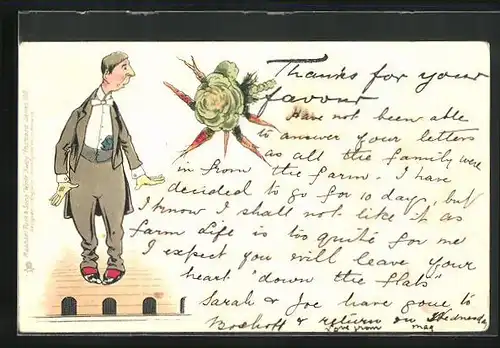 Thanks for your
favour
Have not been able
to answer your letters
as all the family were
in from the farm. I have
decided to go for 10 day, but
I know I shall not like it as
farm life is too quite for me
I expect you will leave your
heart "down the flats"
Sarah & Joe have gone to
& return on Wednesday
Love from Mag